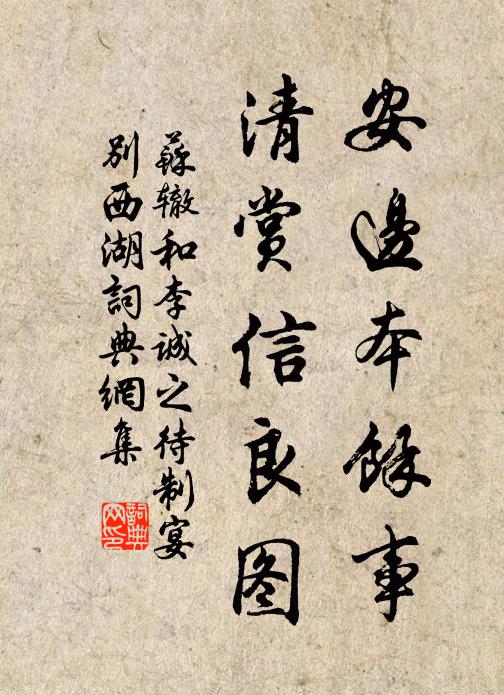 安邊本餘事
清賞信良图
蘇辙和李诚之待制宴
别西湖詞典網集
詞典
网印